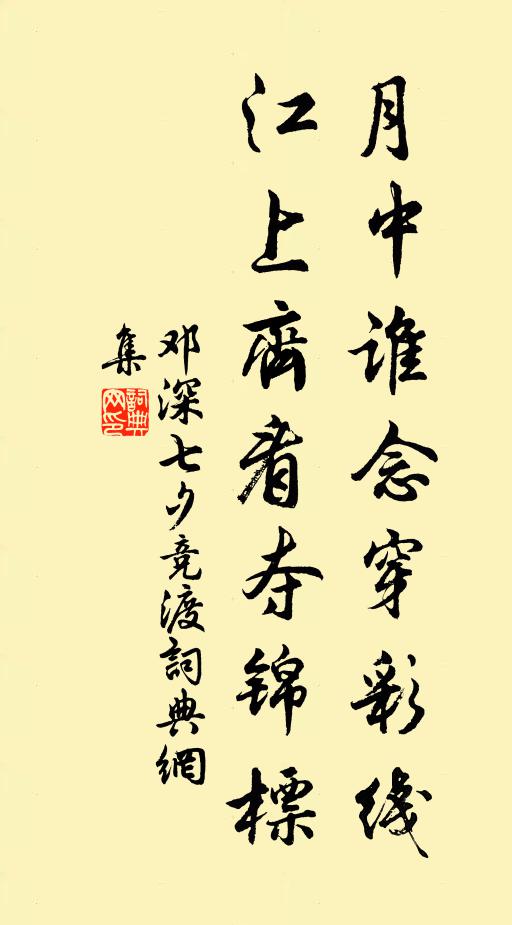 月中谁念穿彩线
江上齊看夺锦標
邓深七夕竞渡詞典網
集
詞典网印